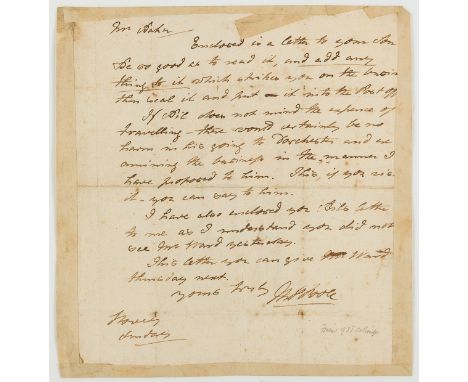 Mr Baker
Enclosed is a letter to your
Be so good as to read it, and add any
thing to it which strikes you on the
then seal it and put it into the Post Off
If does not mind the expence of
travelling - there would certainly be no
harm in his going to Dorchester and ex
amining the business in the manner I
have proposed to him. This if you see
it you can say to him.
I have also enclosed you letter
to me as I understand you did not
see Mr Ward yesterday.
This letter you can give Ward
thursday next.
yours truly Poole
Stowey
Sunday